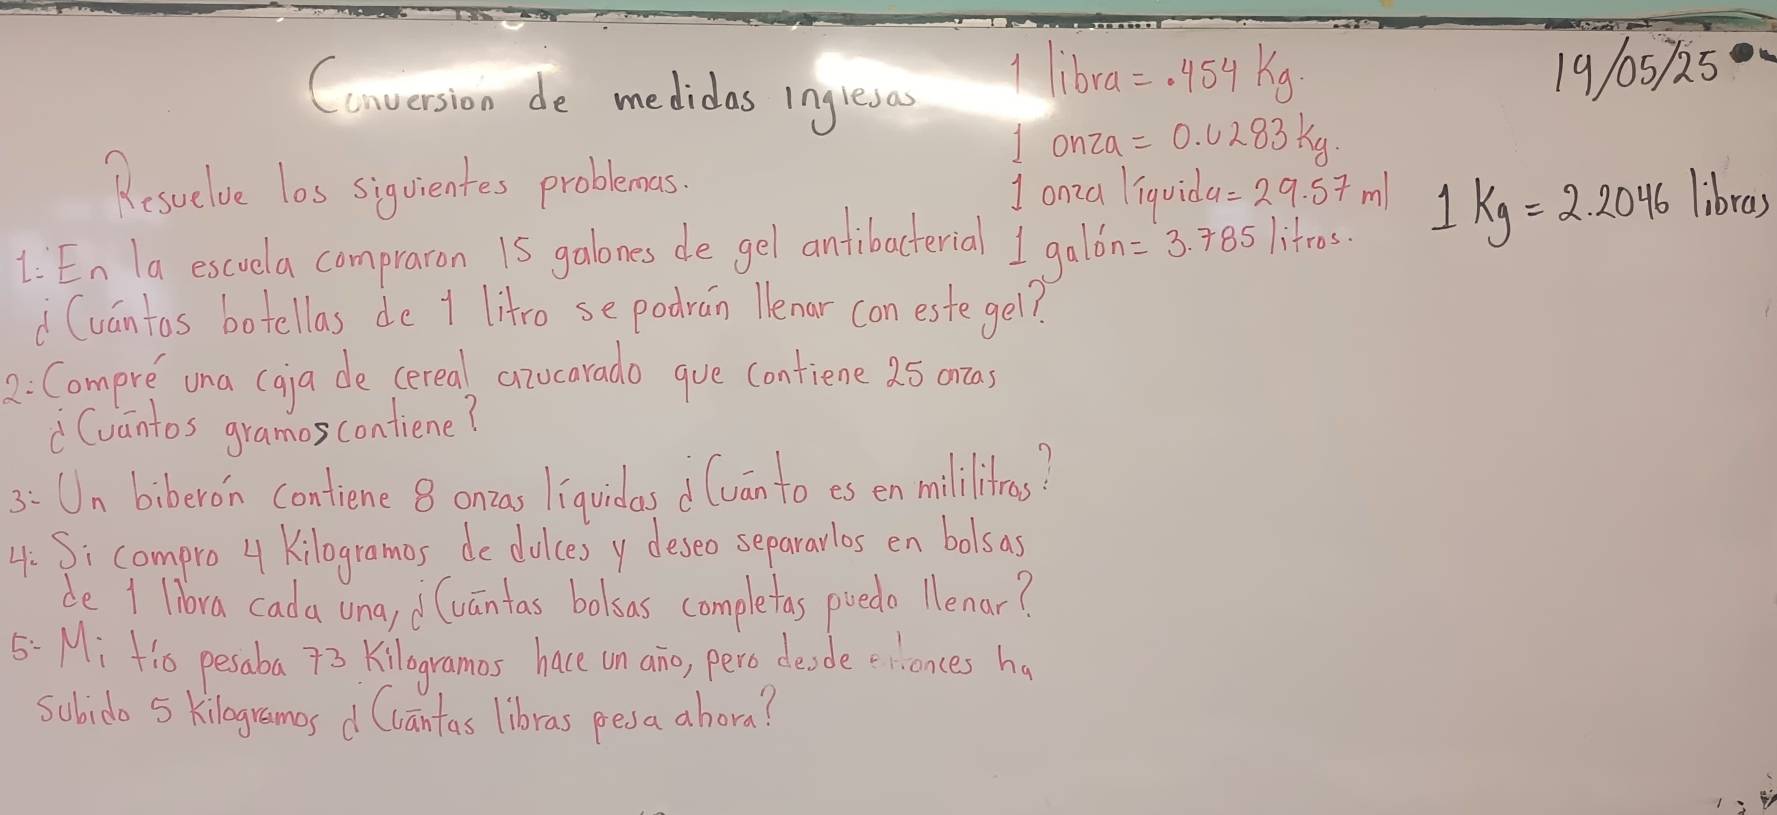 Conversion de medidas inglesas
19/05/25
1 libra = .454 Kg.
1 onza = 0.0283 kg.
1 onza líquida = 29.57 ml
1 galón = 3.785 litros.
1 Kg = 2.2046 libras
Resuelve los siguientes problemas.
1: En la escuela compraron 15 galones de gel antibacterial
¿Cuántas botellas de 1 litro se podrán llenar con este gel?
2: Compré una caja de cereal azucarado que contiene 25 onzas
¿Cuántos gramos contiene?
3: Un biberón contiene 8 onzas líquidas ¿Cuánto es en mililitros?
4: Si compro 4 Kilogramos de dulces y deseo separarlos en bolsas
de 1 libra cada una, ¿Cuántas bolsas completas puedo llenar?
5: Mi tío pesaba 73 Kilogramos hace un año, pero desde entonces ha
subido 5 Kilogramos ¿Cuántas libras pesa ahora?